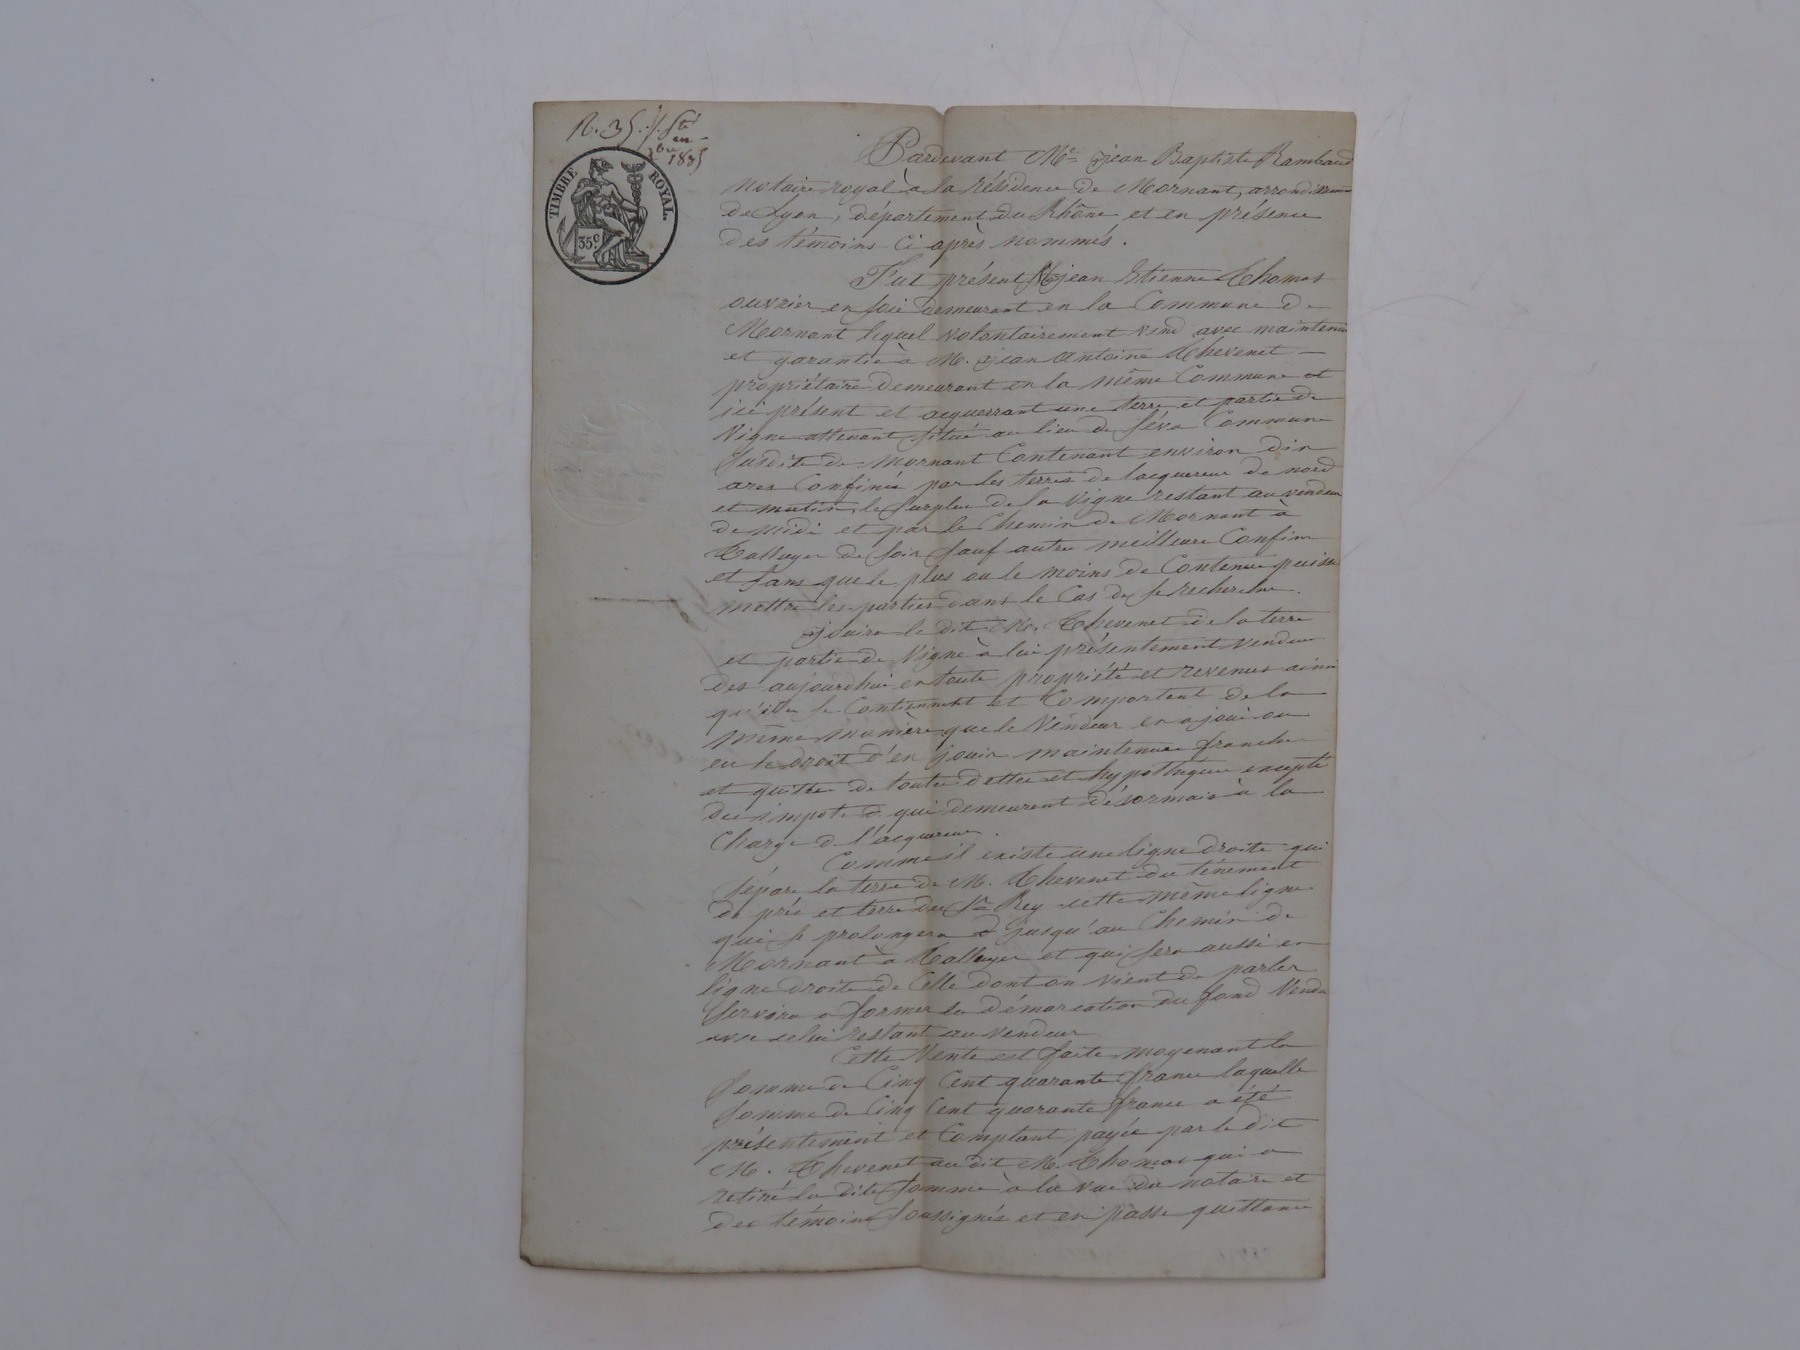 R. 35.
en
1835
TIMBRE ROYAL.
35 c.
Pardevant Me jean Baptiste Rambaud
notaire royal à la résidence de Mornant, arrondissem
de Lyon, département du Rhône et en présence
des témoins ci après nommés.
Fut présent M. jean Etienne Thomas
ouvrier en soie demeurant en la Commune de
Mornant lequel volontairement vend avec maintenue
et garantie à M. jean Antoine Thevenet
propriétaire demeurant en la même Commune et
ici présent et acquerrant une terre et partie de
Vigne attenant située au lieu de Commune
susdite de Mornant Contenant environ dix
ares Confinés par les terres de lacquereur de nord
et matin, le surplus de la Vigne restant au vendeur
de midi et par le Chemin de Mornant à
Talluyer de soir sauf autre meilleure Confin
et sans que le plus ou le moins de Contenue puisse
mettre les parties dans le Cas de se rechercher.
jouira le dit M. Thevenet de la terre
et partie de Vigne à lui présentement vendue
des aujourdhui en toute propriété et revenus ainsi
qu'elles se Contiennent et Comportent de la
même manière que le Vendeur en a joui ou
eu le droit d'en jouir maintenue franche
et quitte de toutes dettes et hypothèques excepté
des impots qui demeurent désormais à la
Charge de l'acquereur.
Comme il existe une ligne droite qui
sépare la terre de M. Thevenet du ténement
de prés et terre du Sr Rey cette même ligne
qui se prolongera jusqu'au Chemin de
Mornant à Talluyer et qui sera aussi en
ligne droite de Celle dont on vient de parler
servira a former la démarcation du fond Vendu
avec celui restant au vendeur
Cette Vente est faite moyenant la
somme de Cinq Cent quarante francs laquelle
somme de Cinq Cent quarante francs a été
présentement et Comptant payée par le dit
M. Thevenet au dit M. Thomas qui a
retiré la dite somme à la vue du notaire et
des témoins soussignés et en passe quittance